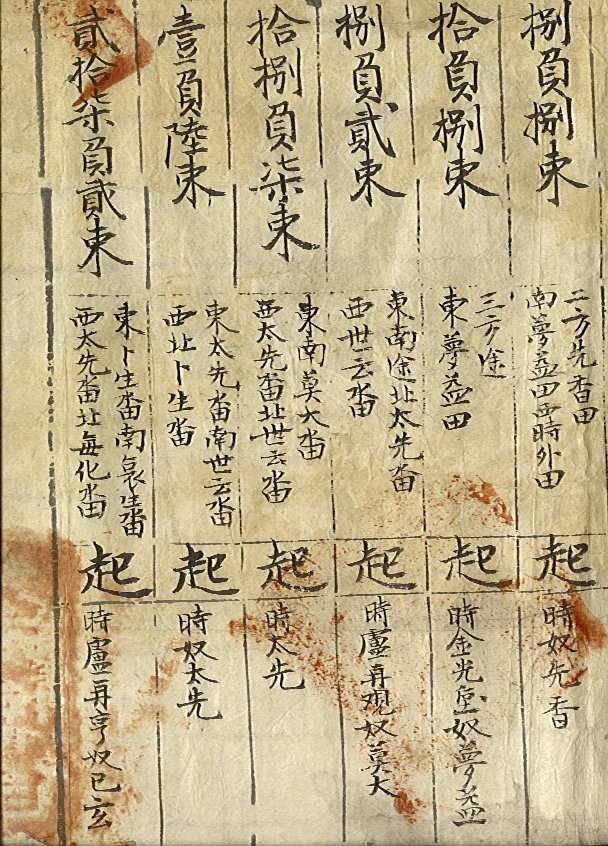 捌負捌束
二方先香田
南夢益田西時外田
起
時奴先香
拾負捌束
三方途
東夢益田
起
時金光玉奴夢益
捌負貳束
東南途北太先畓
西世云畓
起
時盧再現奴莫大
拾捌負柒束
東南莫大畓
西太先畓北世云畓
起
時太先
壹負陸束
東太先畓南世云畓
西北卜生畓
起
時奴太先
貳拾柒負貳束
東卜生畓南哀生畓
西太先畓北每化畓
起
時盧再亨奴已玄